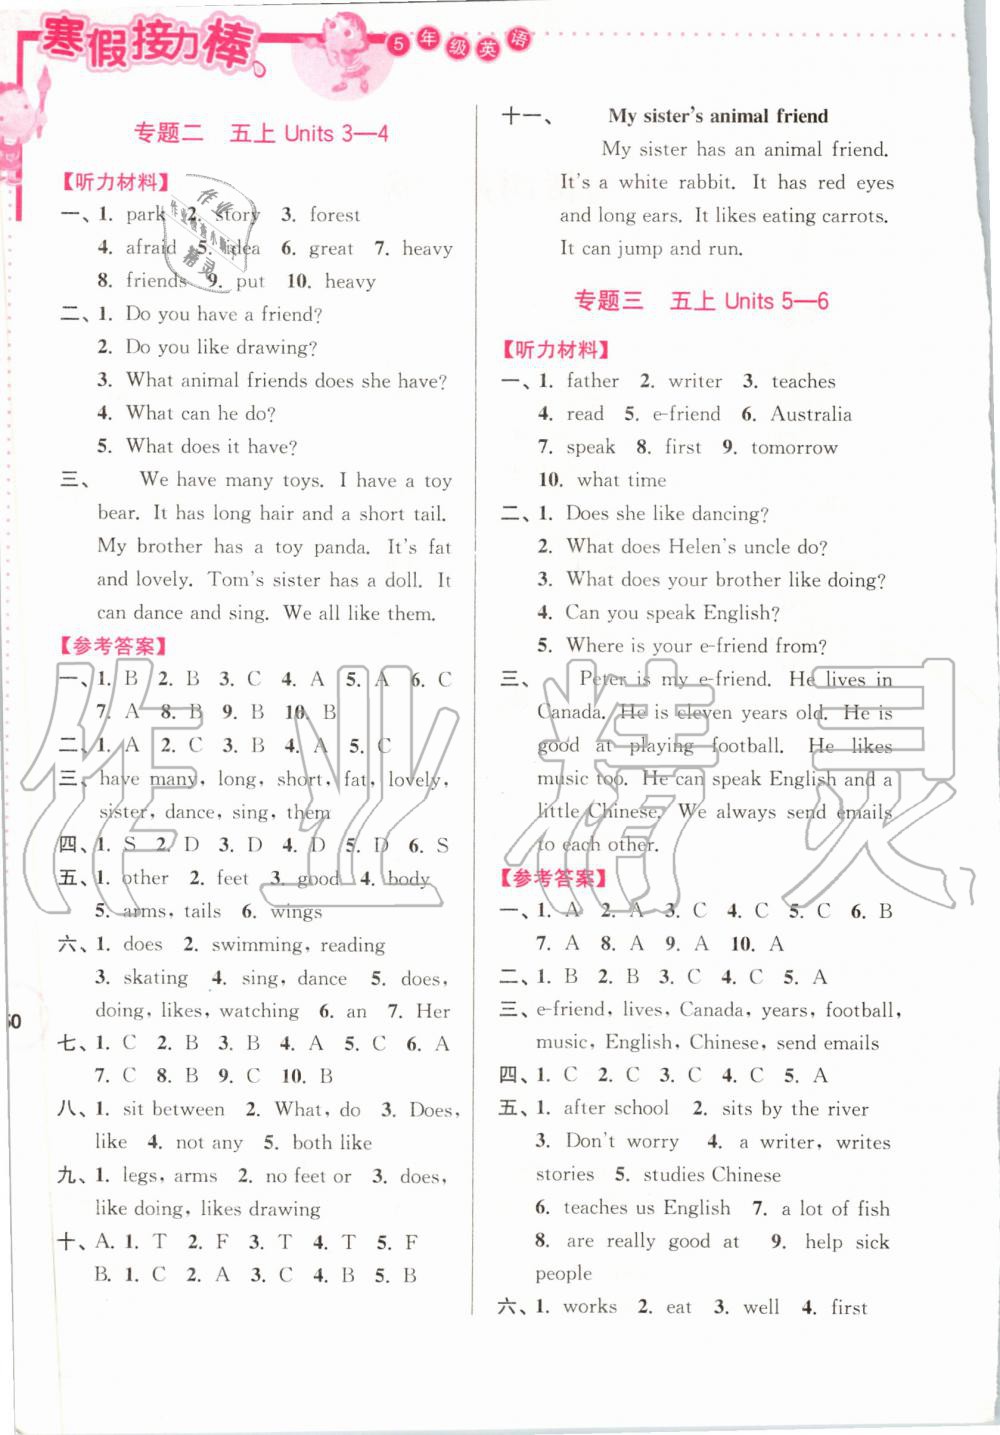 寒假接力棒
5年级英语
专题二 五上 Units 3—4
【听力材料】
一、1. park 2. story 3. forest
4. afraid 5. idea 6. great 7. heavy
8. friends 9. put 10. heavy
二、1. Do you have a friend?
2. Do you like drawing?
3. What animal friends does she have?
4. What can he do?
5. What does it have?
三、 We have many toys. I have a toy
bear. It has long hair and a short tail.
My brother has a toy panda. It's fat
and lovely. Tom's sister has a doll. It
can dance and sing. We all like them.
【参考答案】
一、1. B 2. B 3. C 4. A 5. A 6. C
7. A 8. B 9. B 10. B
二、1. A 2. C 3. B 4. A 5. C
三、have many, long, short, fat, lovely,
sister, dance, sing, them
四、1. S 2. D 3. D 4. D 5. D 6. S
五、1. other 2. feet 3. good 4. body
5. arms, tails 6. wings
六、1. does 2. swimming, reading
3. skating 4. sing, dance 5. does,
doing, likes, watching 6. an 7. Her
七、1. C 2. B 3. B 4. A 5. C 6. A
7. C 8. B 9. C 10. B
八、1. sit between 2. What, do 3. Does,
like 4. not any 5. both like
九、1. legs, arms 2. no feet or 3. does,
like doing, likes drawing
十、A. 1. T 2. F 3. T 4. T 5. F
B. 1. C 2. A 3. C 4. B 5. B
十一、 My sister's animal friend
My sister has an animal friend.
It's a white rabbit. It has red eyes
and long ears. It likes eating carrots.
It can jump and run.
专题三 五上 Units 5—6
【听力材料】
一、1. father 2. writer 3. teaches
4. read 5. e-friend 6. Australia
7. speak 8. first 9. tomorrow
10. what time
二、1. Does she like dancing?
2. What does Helen's uncle do?
3. What does your brother like doing?
4. Can you speak English?
5. Where is your e-friend from?
三、 Peter is my e-friend. He lives in
Canada. He is eleven years old. He is
good at playing football. He likes
music too. He can speak English and a
little Chinese. We always send emails
to each other.
【参考答案】
一、1. A 2. A 3. C 4. C 5. C 6. B
7. A 8. A 9. A 10. A
二、1. B 2. B 3. C 4. C 5. A
三、e-friend, lives, Canada, years, football,
music, English, Chinese, send emails
四、1. C 2. C 3. C 4. C 5. A
五、1. after school 2. sits by the river
3. Don't worry 4. a writer, writes
stories 5. studies Chinese
6. teaches us English 7. a lot of fish
8. are really good at 9. help sick
people
六、1. works 2. eat 3. well 4. first
作业精灵